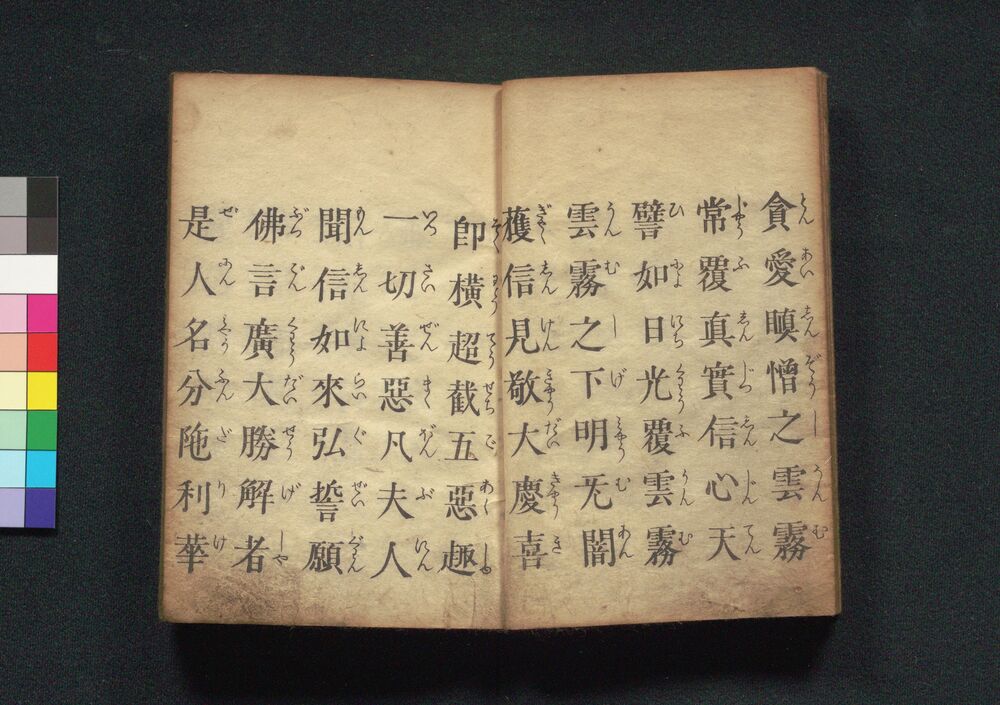 貪愛瞋憎之雲霧
常覆真實信心天
譬如日光覆雲霧
雲霧之下明无闇
獲信見敬大慶喜
卽橫超截五惡趣
一切善惡凡夫人
聞信如來弘誓願
佛言廣大勝解者
是人名分陁利華